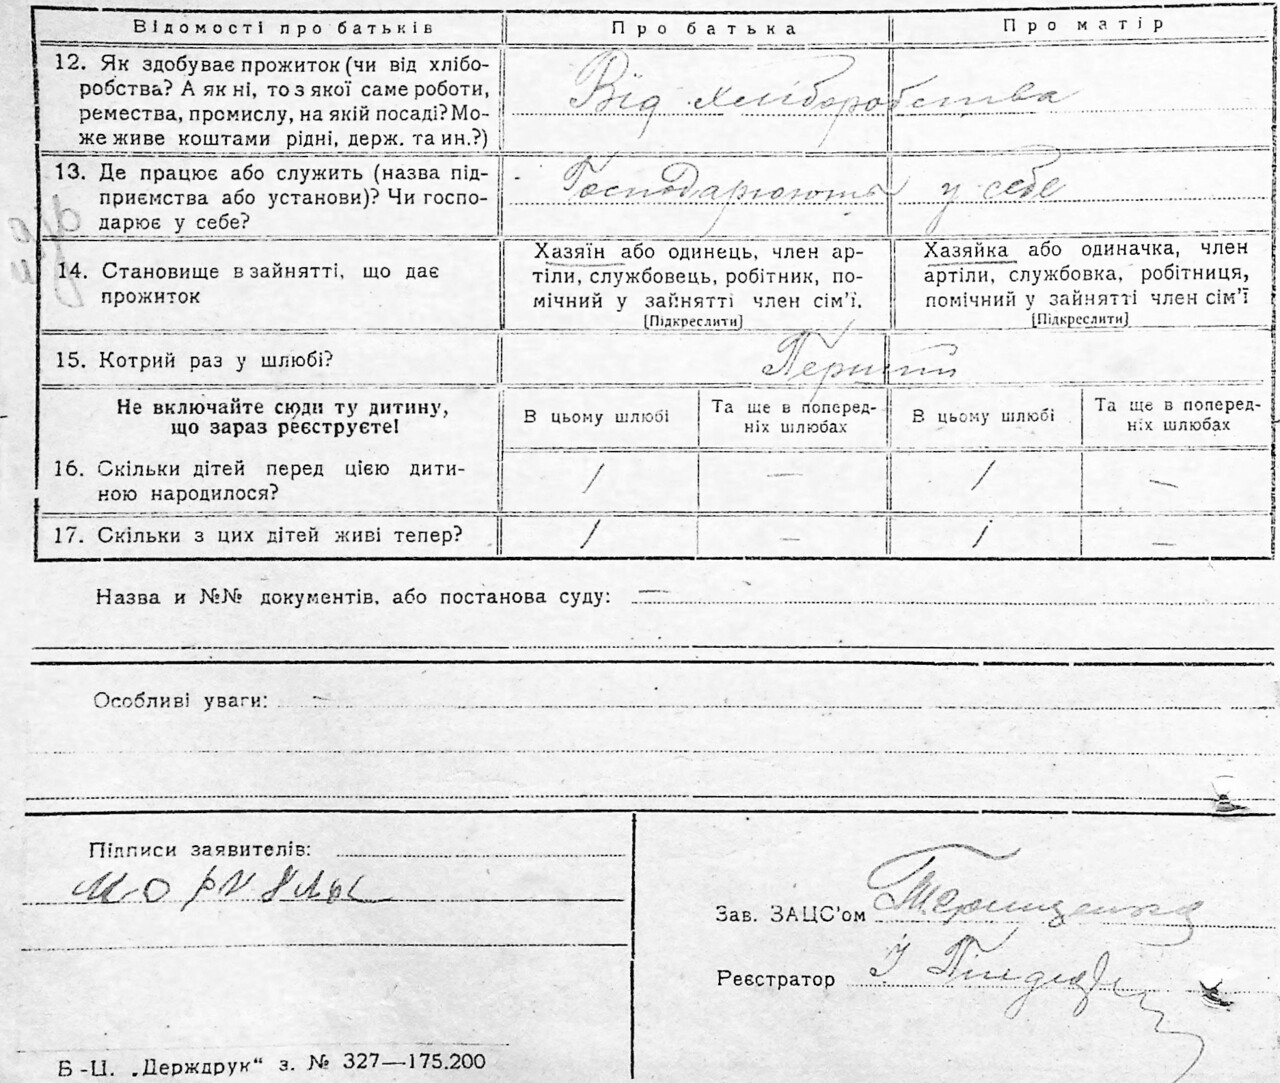 Відомості про батьків Про батька Про матір
12. Як здобуває прожиток (чи від хлібо-
робства? А як ні, то з якої саме роботи,
ремества, промислу, на якій посаді? Мо-
же живе коштами рідні, держ. та ин.?)
Від хліборобства
13. Де працює або служить (назва під-
приємства або установи)? Чи госпо-
дарює у себе?
Господарюють у себе
14. Становище в зайнятті, що дає
прожиток
Хазяїн або одинець, член ар-
тіли, службовець, робітник, по-
мічний у зайнятті член сім'ї.
[Підкреслити]
Хазяйка або одиначка, член
артіли, службовка, робітниця,
помічний у зайнятті член сім'ї
[Підкреслити]
15. Котрий раз у шлюбі? Перший
Не включайте сюди ту дитину,
що зараз реєструєте!
В цьому шлюбі
Та ще в поперед-
ніх шлюбах
В цьому шлюбі
Та ще в поперед-
ніх шлюбах
16. Скільки дітей перед цією дити-
ною народилося?
1 — 1 —
17. Скільки з цих дітей живі тепер? 1 — 1 —
Назва и №№ документів, або постанова суду: —
Особливі уваги: —
Підписи заявителів:
Зав. ЗАЦС'ом
Реєстратор
Б-Ц. „Держдрук“ з. № 327—175.200